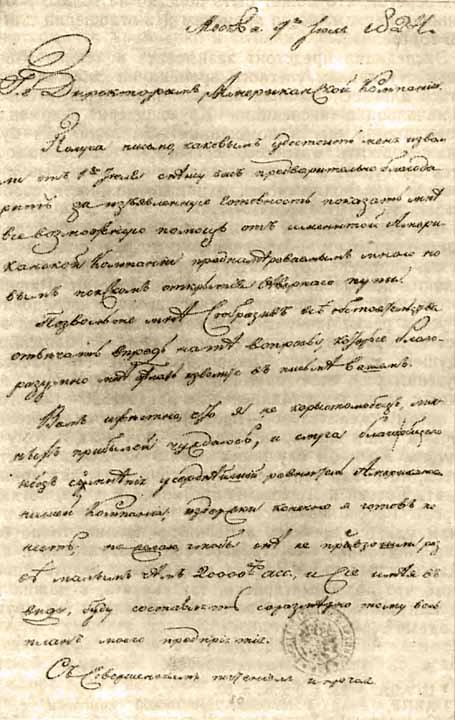 Москва 7го Июль 1824.
Г.г. Директорамъ, Американской Компаніи
Получа письмо, каковымъ удостоить меня изволи
ли отъ 1го Июля спешу васъ предварительно благода
рить за изъявленную готовность показать мнѣ
все возможную помощь отъ именитой Амери
канской Компаніи преднамѣреваемымъ мною но
вымъ поискомъ открытія Сѣвернаго пути.
Позвольте мнѣ Сообразивъ всѣ обстоятельства
отвѣчать впредь на тѣ вопросы, которые благо
разумно мнѣ въ письмѣ вашемъ.
Вамъ извѣстно, что я не корыстолюбецъ, лич
ныхъ прибылей чуждаюсь, и слуга
безъ сумнѣнія усерднѣйшій Американс
Компаніи, издержки конечно я готовъ по
несть; но желаю, чтобы онѣ не превзошли раз
вѣ малымъ чѣмъ 20000 асс., и Сіе имѣя въ
виду, буду составлять соразмѣрно тому весь
планъ моего предпріятія.
Съ Совершеннымъ почтеніемъ и прочая